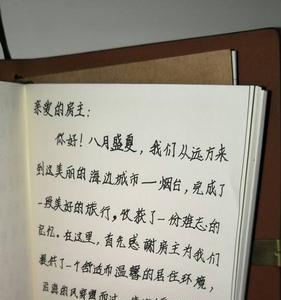 亲爱的房主：
你好！八月盛夏，我们从远方来
到这美丽的海边城市一烟台，完成了
一段美好的旅行，收获了一份难忘的
记忆。在这里，首先感谢房主为我们
提供了一个舒适而温馨的居住环境，
的风